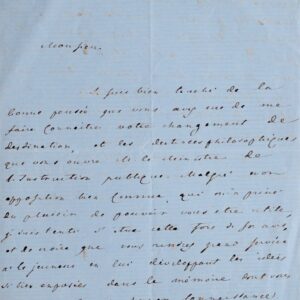 Monsieur,
Je suis bien touché de la
bonne pensée que vous avez eue de me
faire connaître votre changement de
destination, et les destinées philosophiques
que vous ouvre M. le Ministre de
l'Instruction publique. Malgré mon
opposition bien connue, qui m'a privé
du plaisir de pouvoir vous être utile,
je suis tenté d'être cette fois de son avis,
et de croire que vous rendrez grand service
à la jeunesse en lui développant les idées
si bien exposées dans le mémoire dont vous